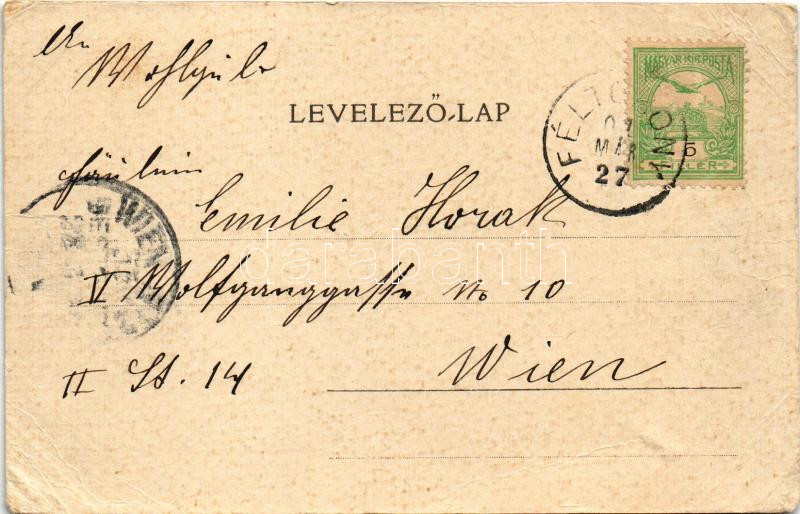 An
Wohlgeb.
LEVELEZŐ-LAP
MAGYAR KIR. POSTA
5
FILLÉR
01
MÁR
27
Fräulein
Emilie Horak
WIEN
V Wolfganggasse No 10
II St. 14
Wien
darabanth